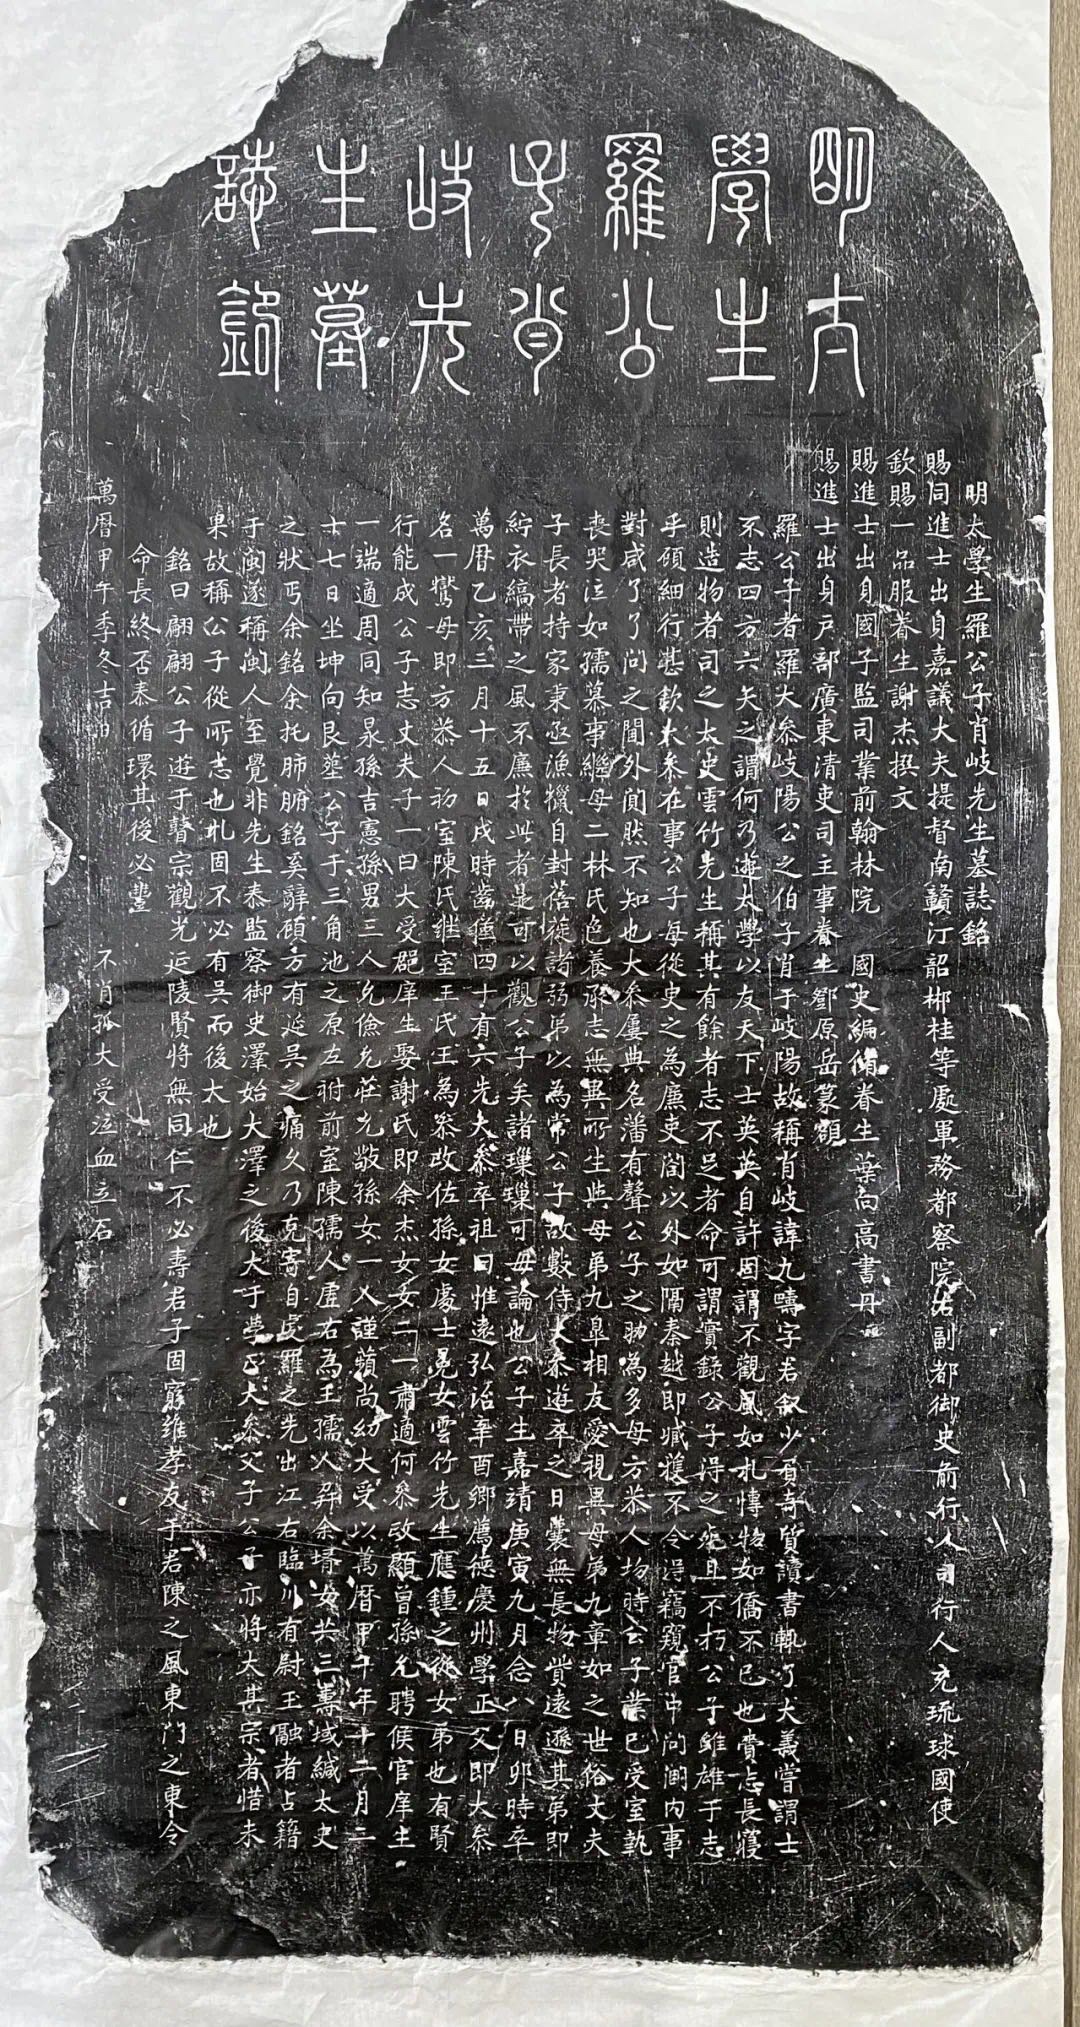 明太
學生
羅公
子肖
岐先
生墓
誌銘
明太學生羅公子肖岐先生墓誌銘
賜同進士出身嘉議大夫提督南贛汀韶郴桂等處軍務都察院右副都御史前行人司行人充琉球國使
欽賜一品服眷生謝杰撰文
賜進士出身國子監司業前翰林院 國史編脩眷生葉向高書丹
賜進士出身戶部廣東清吏司主事眷生鄧原岳篆額
羅公子者羅大叅岐陽公之伯子肖于岐陽故稱肖岐諱九疇字君叙少有奇質讀書輒了大義嘗謂士
不志四方六矢之謂何乃遊太學以友天下士英英自許因謂不觀風如札慱物如僑不已也賫志長寢
則造物者司之太史雲竹先生稱其有餘者志不足者命可謂實錄公子得之死且不朽公子雖雄于志
乎碩細行甚歉大叅在事公子每從史之為廉吏閤以外如隔秦越即臧獲不令淂竊窺官中間詗內事
對咸了了问之閫外闃然不知也大叅屢典名藩有聲公子之助為多母方恭人均時公子業已受室執
喪哭泣如孺慕事繼母二林氏色養承志無異所生與母弟九昰相友愛視異母弟九章如之世俗丈夫
子長者持家秉亟漁獵自封蓓蓰諸弱弟以為常公子故數侍大叅遊卒之日囊無長物貲遠遜其弟即
紵衣縞帶之風不廉扵此者是可以觀公子矣諸璅璅可毋論也公子生嘉靖庚寅九月念八日卯時卒
萬曆乙亥三月十五日戌時齒僅四十有六先大叅卒祖曰惟遠弘治辛酉鄉薦德慶州學正父即大叅
名一鸑母即方恭人初室陳氏继室王氏王為叅政佐孫女處士晃女雲竹先生應鍾之從女弟也有賢
行能成公子志丈夫子一曰大受郡庠生娶謝氏即余杰女女二一肅適何叅政顯曾孫允聘侯官庠生
一端適周同知杲孫吉憲孫男三人允儉允莊允敬孫女一人謹蘋尚幼大受以萬曆甲午年十二月二
十七日坐坤向艮塟公子于三角池之原左祔前室陳孺人虛右為王孺人并余壻女共三壽域緘太史
之狀丐余銘余托肺腑銘奚辭碩方有延吳之痛久乃克寄自虔羅之先出江右臨川有尉王融者占籍
于閩遂稱閩人至覺非先生泰監察御史澤始大澤之後大于學正大叅父子公子亦將大其宗者惜未
果故稱公子從所志也札固不必有吳而後大也
銘曰翩翩公子遊于瞽宗觀光延陵賢將無同仁不必壽君子固窮維孝友于君陳之風東門之東令
命長終否泰循環其後必豐
萬曆甲午季冬吉日 不肖孤大受泣血立石